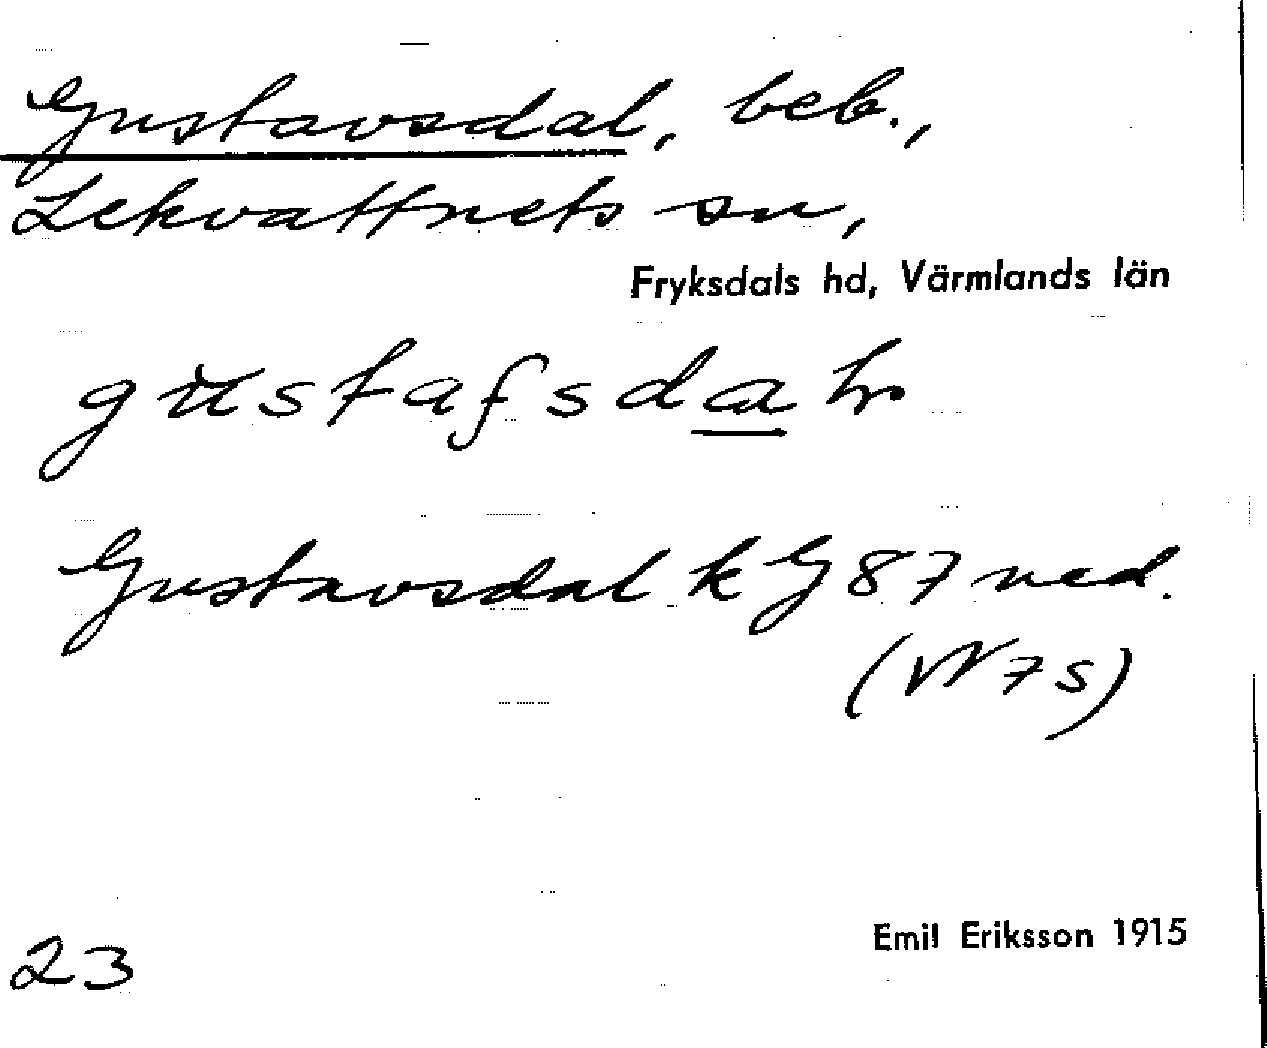 Gustavsdal, beb.,
Lekvattnets sn,
Fryksdals hd, Värmlands län
gustafsdal
Gustavsdal k G 87 ned.
(W 7 S)
Emil Eriksson 1915
23